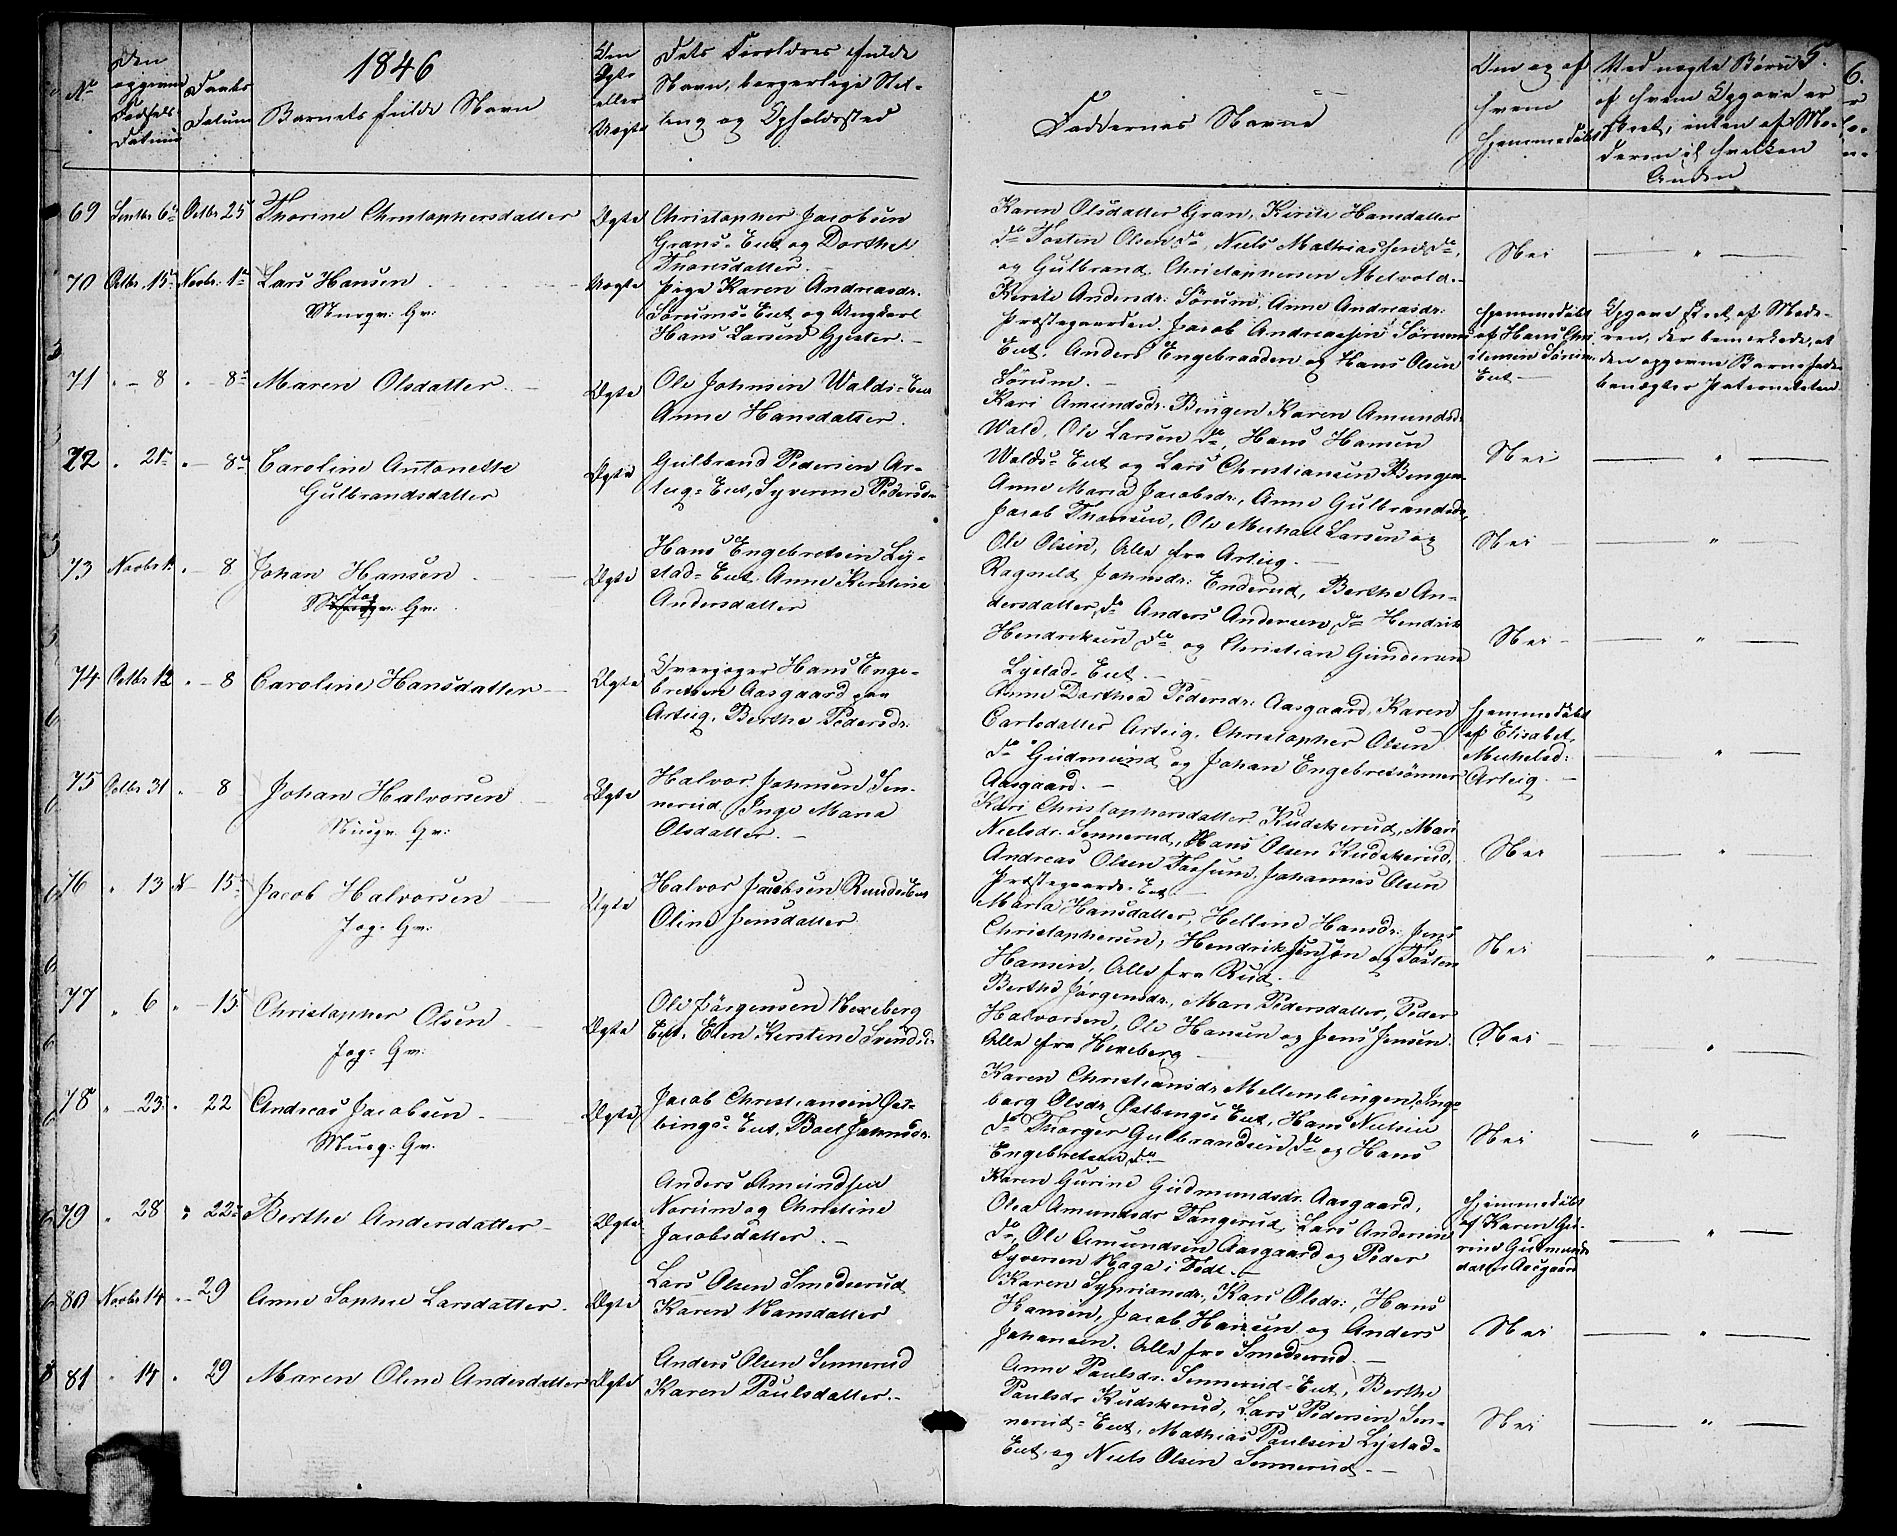 1846
No
Den
opgivne
Fødsels-
Datum
Daabs
Datum
Barnets fulde Navn
Om
Ægte
eller
Uægte
Dets Forældres fulde
Navn, borgerlige Stil-
ling og Opholdssted
Faddernes Navne
Om og af
hvem
hjemmedøbt
Ved uægte Børn 5.
af hvem Opgave er
skeet, enten af Mo-
deren el hvilken
Anden
69 Septbr. 6 Octbr. 25 Thorine Christophersdatter Ægte
Christopher Jacobsen
Grans-Eie og Dorthe
Thorsdatter.
Karen Olsdatter Gran, Kirsti Hansdatter
do Tosten Olsen do, Niels Mathiassen do,
og Gulbrand Christophersen Melvold.
Nei
70 Octbr. 15 Novbr. 1 Lars Hansen
Uægte
Pige Karen Andreasdr.
Sørums-Eie og Ungkarl
Hans Larsen Gjester.
Kirsti Andersdr. Sørum, Anne Andreasdr:
Præstegaarden. Jacob Andreassen Sørums
Eie, Anders Engebraaden og Hans Olsen
Sørum.
Hjemmedøbt
af Hans Chri
stensen Sørum
Eie
Opgave skeet af Mode-
ren, der bemærkede, at
den opgivne Barnefader
benægter Paterniteten
71 " - 8 " - 8 Maren Olsdatter. Ægte
Ole Johnsen Walds-Eie
Anne Hansdatter.
Kari Amundsdr. Bingen Karen Amundsd
Wald, Ole Larsen do, Hans Hansen
Walds-Eie og Lars Christiansen Bingen
Nei
72 " 21 " - 8 Caroline Antonette
Gulbrandsdatter
Ægte
Gulbrand Pedersen Ar-
teig-Eie, Syverine Pedersdr
Anne Maria Jacobsdr., Anne Gulbrandsdr,
Jacob Thorsen, Ole Michael Larsen og
Ole Olsen, Alle fra Arteig.
Nei
73 Novbr 1 " - 8 Johan Hansen
Jag
Gv:
Ægte
Hans Engebretsen Ly-
stad-Eie, Anne Kirstine
Andersdatter
Ragnild Johnsdr: Enderud, Berthe An-
dersdatter, do Anders Andersen do Hendrik
Hendriksen do og Christian Gundersen
Lystad-Eie
Nei
74 Octbr 12 " - 8 Caroline Hansdatter Ægte
Hans Enge-
bretsen Aasgaard paa
Arteig, Berthe Pedersdr:
Anne Dorthea Pedersdr: Aasgaard, Karen
Carlsdatter Arteig, Christopher Olsen
do Gudmund og Johan Engebretsønner
Aasgaard.
Hjemmedøbt
af Elisabet
Michelsd:
Arteig.
75 Octbr 31 " - 8 Johan Halvorsen
Ægte
Halvor Johnsen Sen-
nerud, Inge Maria
Olsdatter.
Kari Christophersdatter Kudskerud, Mari
Nielsdr. Sennerud, Hans Olsen Kudskerud,
Andreas Olsen Johannes Olsen
Præstegaards-Eie
Nei
76 " 13 " 15 Jacob Halvorsen
Jag. Gv:
Ægte
Halvor Jacobsen Ruuds-Eie
Oline Jensdatter
Maria Hansdatter, Helline Hansdr: Jens
Christophersen, Hendrik Jenssøn og Tosten
Hansen, Alle fra Rud.
Nei
77 " 6 " - 15 Christopher Olsen
Jag: Gv:
Ægte
Ole Jørgensen Hexeberg
Eie, Elen Kirstine Svendsd.
Berthe Jørgensdr., Mari Pedersdatter, Peder
Halvorsen, Ole Hansen og Jens Jensen.
Alle fra Hexeberg
Nei
78 " - 23 " 22 Andreas Jacobsen
Ægte
Jacob Christiansen Øst-
bings-Eie, Boel Johnsdr:
Karen Christiansdr Mellembingen, Inge-
borg Olsdr Østbings-Eie, Hans Nielsen
do Thorger Gulbrandsen do og Hans
Engebretsen do.
Nei
79 " 28 " 22 Berthe Andersdatter Ægte
Anders Amundsen
Norum og Christine
Jacobsdatter.
Karen Gurine Gudmundsdr. Aasgaard,
Olea Amundsdr Tangerud, Lars Andersen
do, Ole Amundsen Aasgaard og Peder
Syversen Haga i
Hjemmedøbt
af Karen Gu-
rine Gudmunds
datter Aasgaard
80 Novbr 14 " - 29 Anne Sophie Larsdatter. Ægte
Lars Olsen Smedsrud
Karen Hansdatter
Karen Sypriansdr., Kari Olsdr., Hans
Hansen, Jacob Hansen og Anders
Johansen. Alle fra Smedsrud
Nei
81 " 14 " 29 Maren Oline Andersdatter Ægte
Anders Olsen Sennerud
Karen Paulsdatter.
Anne Paulsdr. Sennerud-Eie, Berthe
Paulsdr Kudskerud, Lars Pedersen Sen-
nerud-Eie, Mathias Paulsen Lystad-
Eie, og Niels Olsen Sennerud.
Nei